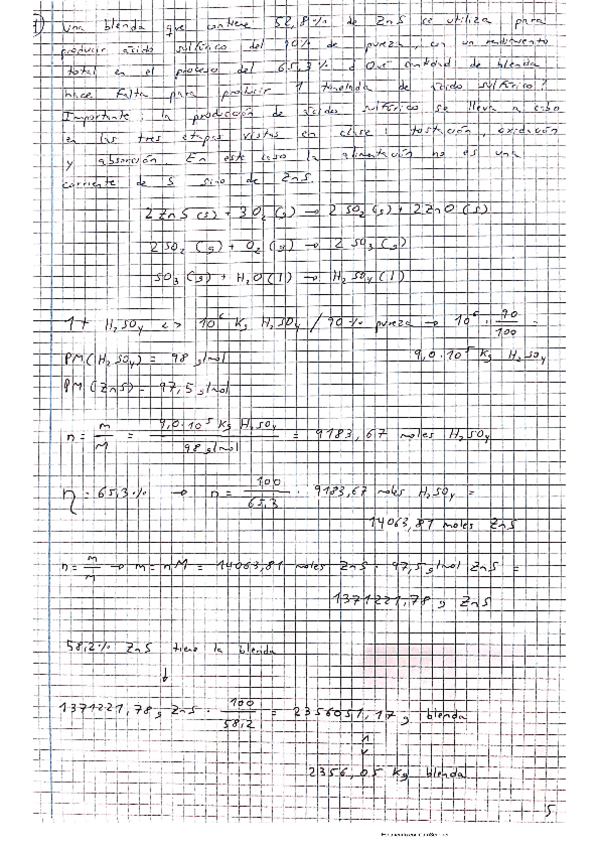 1) Una blenda que contiene 52,8% de ZnS se utiliza para
producir ácido sulfúrico del 90% de pureza, con un rendimiento
total en el proceso del 65,3% ¿Qué cantidad de blenda
hace falta para producir 1 tonelada de ácido sulfúrico?
Importante: la producción de ácido sulfúrico se lleva a cabo
en las tres etapas vistas en clase: tostación, oxidación
y absorción. En este caso la alimentación no es una
corriente de S sino de ZnS.
2 ZnS (s) + 3 O2 (g) → 2 SO2 (g) + 2 ZnO (s)
2 SO2 (g) + O2 (g) → 2 SO3 (g)
SO3 (g) + H2O (l) → H2SO4 (l)
1 t H2SO4 <> 10^6 Kg H2SO4 / 90% pureza → 10^6 · 90/100 =
9,0·10^5 Kg H2SO4
PM (H2SO4) = 98 g/mol
PM (ZnS) = 97,5 g/mol
n = m/M = 9,0·10^5 Kg H2SO4 / 98 g/mol = 9183,67 moles H2SO4
η = 65,3% → n = 100/65,3 · 9183,67 moles H2SO4 =
14063,81 moles ZnS
n = m/m → m = nM = 14063,81 moles ZnS · 97,5 g/mol ZnS =
1371221,78 g ZnS
58,2% ZnS tiene la blenda
↓
1371221,78 g ZnS · 100/58,2 = 2356051,17 g blenda
2356,05 Kg blenda
5